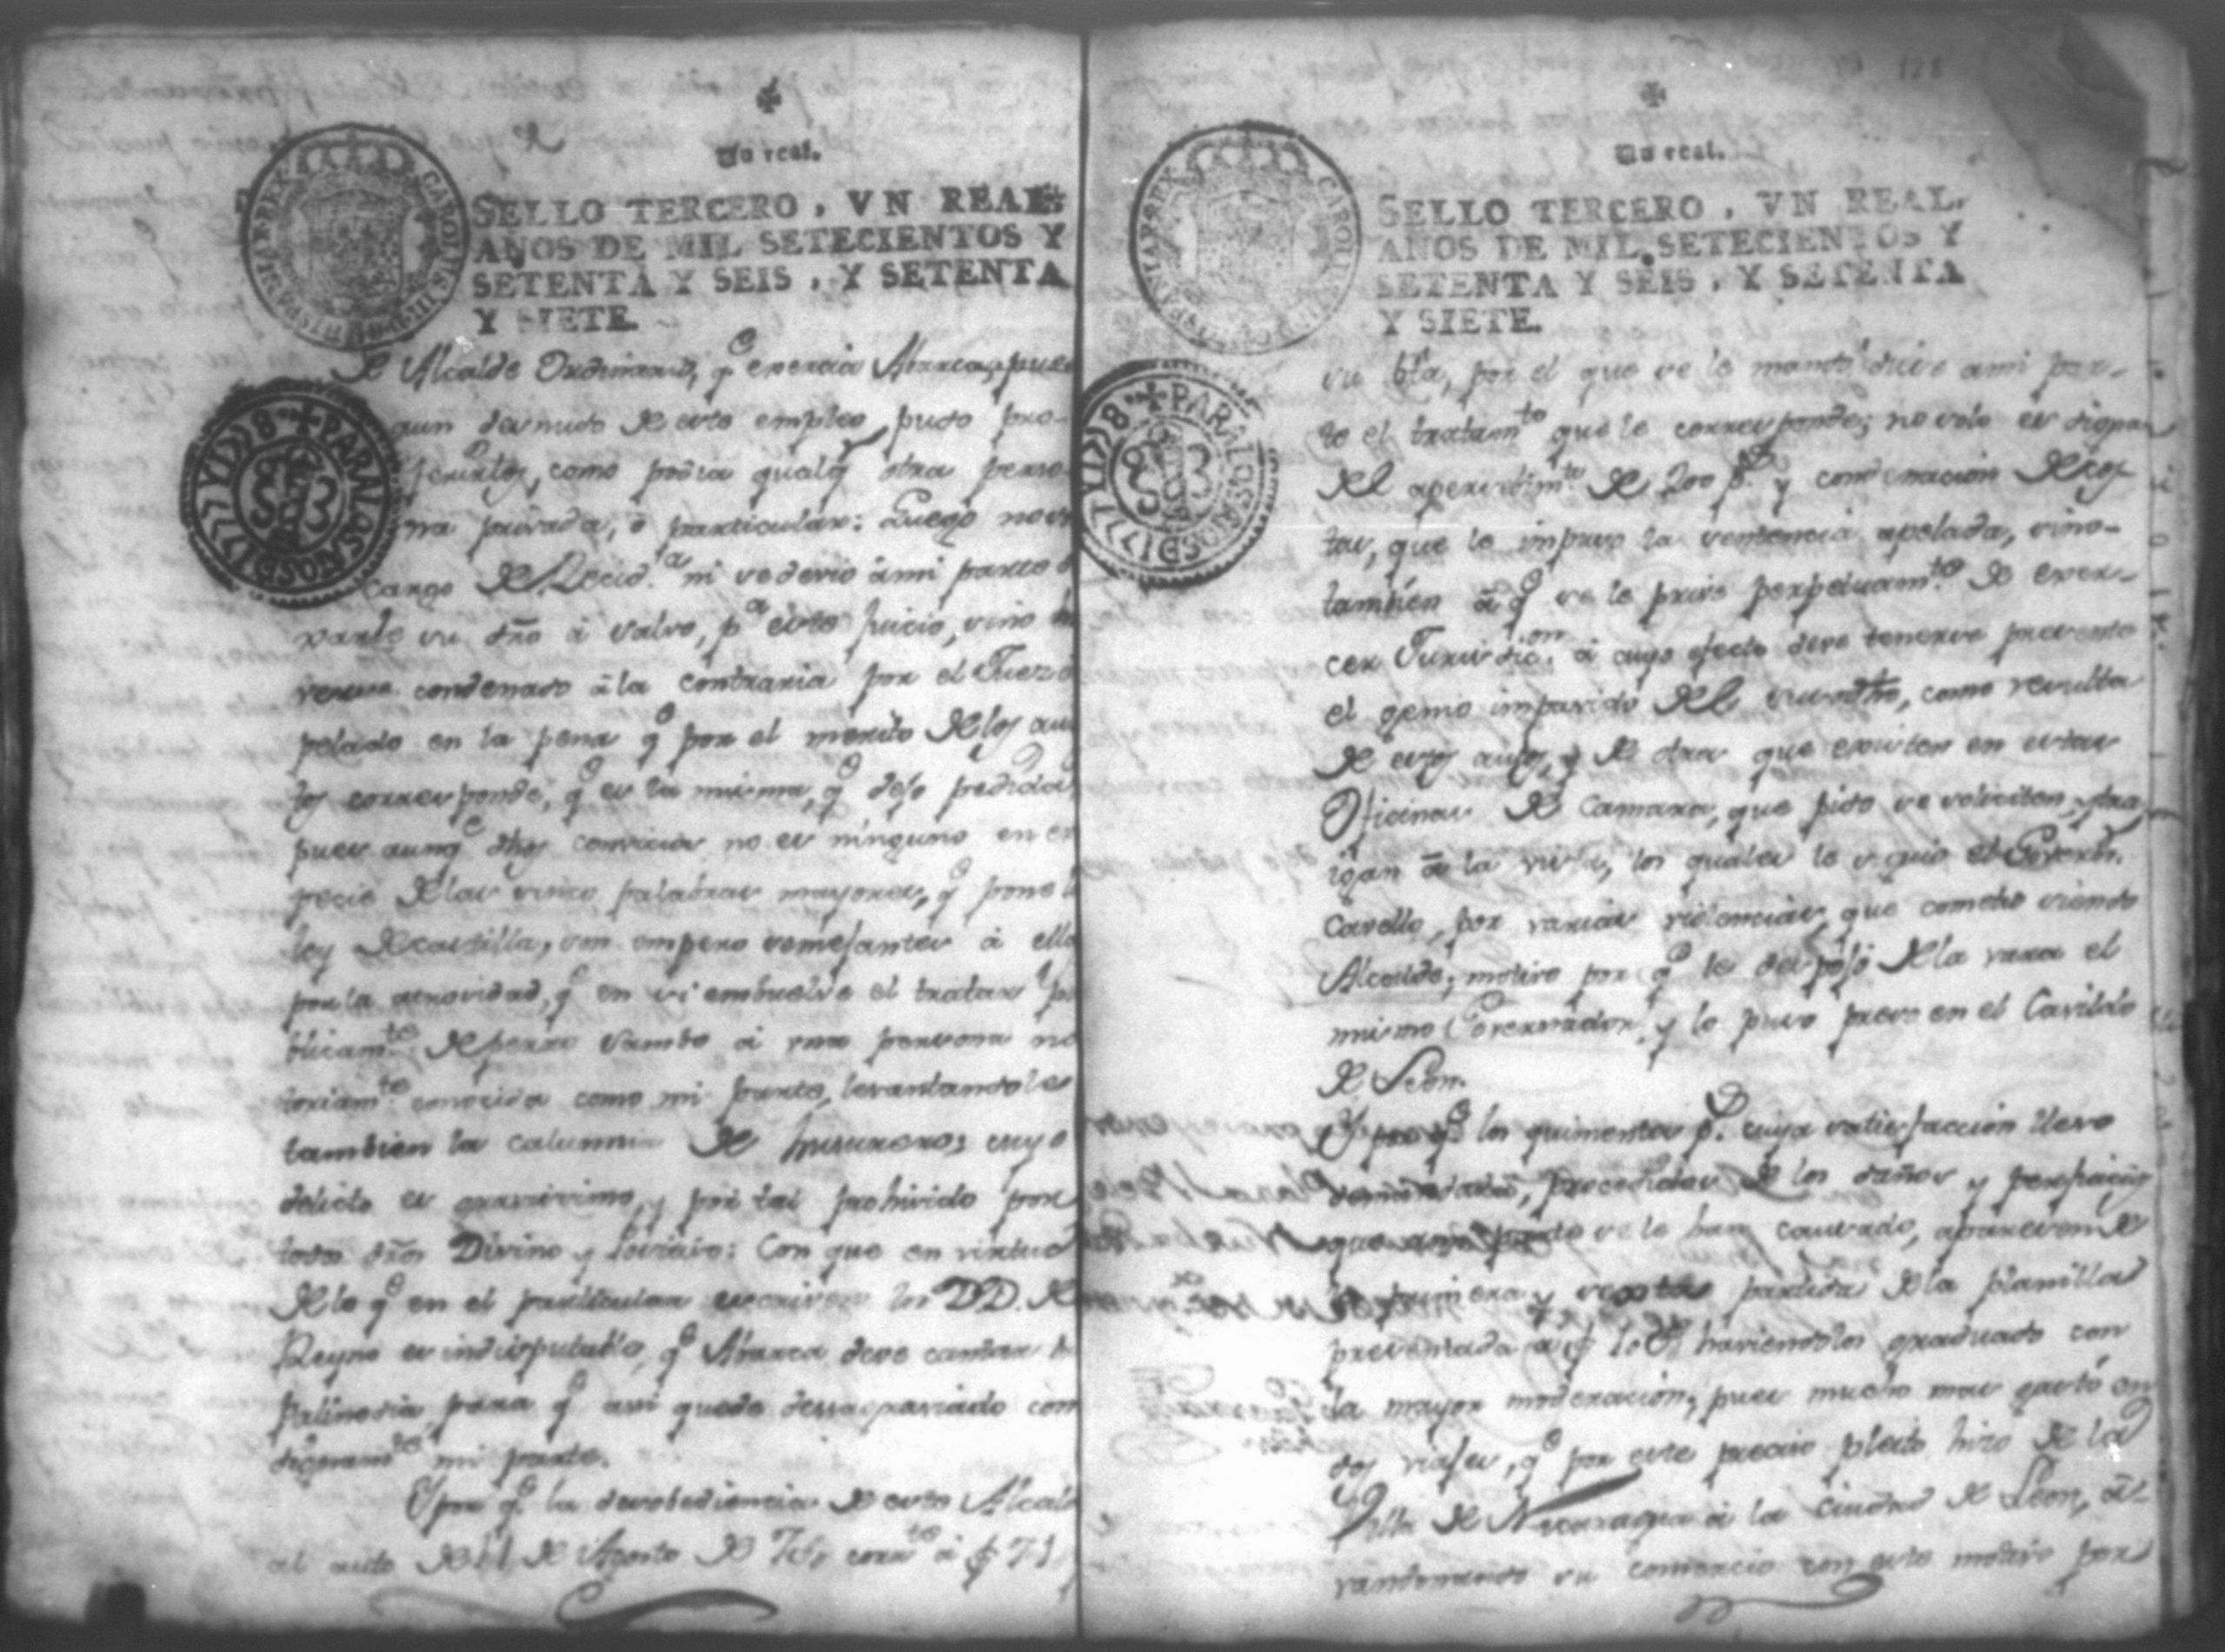 Un real.
SELLO TERCERO, VN REAL
AÑOS DE MIL SETECIENTOS Y
SETENTA Y SEIS, Y SETENTA
Y SIETE.
CAROLUS III
HISPANIAR REX
PARA LOS AÑOS D 1777 Y 1778
de Alcalde Ordinario, q.e exercia Abarca, pues
aun desnudo de este empleo, pudo pro-
ferirlos, como podia qualq.a otra perso-
na privada, ò particular: Luego no es
cargo de Resid.a ni se devio â mi parte
varle su dro â salvo, p.a este juicio, sino
verse condenado â la contraria por el Juez a
pelado en la pena q.e por el merito de los au
tos corresponde, q.e es la misma, q.e dejo pedida,
pues aunq.e dhos convicios no es ninguno en es
pecie de las cinco palabras mayores, q.e pone la
ley de Castilla, son empero semejantes â ella
por la atrocidad, q.e en si embuelve el tratar pu
blicam.te de perro Sambo â una persona no
toriam.te conocida como mi parte, levantandole
tambien la calumnia de husurero; cuyo
delicto es gravissimo, y por tal prohivido por
todo dro Divino y Positivo: Con que en virtud
de lo q.e en el particular escriven los DD. de
Reyno es indisputable, q.e Abarca deve cantar la
Palinodia, para q.e assi quede desagraviado con
dignam.te mi parte.
Y por q.e la desobediencia de este Alcalde
al auto de 11 de Agosto de 76, corr.te â f 71
128
Un real.
SELLO TERCERO, VN REAL,
AÑOS DE MIL SETECIENTOS Y
SETENTA Y SEIS, Y SETENTA
Y SIETE.
CAROLUS III
HISPANIAR REX
PARA LOS AÑOS D 1777 Y 1778
su fta, por el que se le mandó diese a mi par-
te el tratam.to que le corresponde; no solo es digna
del apercivim.to de 200 p.s y condenacion de cos-
tas, que le impuso la sentencia apelada, sino
tambien â q.e se le prive perpetuam.te de exer-
cer Jurisdic.on â cuyo efecto deve tenerse presente
el genio impavido del susodho, como resulta
de estos autos, y de otros que existen en estas
Oficinas de Camara, que pido se soliciten, y tra
igan â la vista, los quales le siguió el Govern.
Cavello, por varias violencias, que cometió siendo
Alcalde; motivo por q.e le despojó de la vara el
mismo Governador, y lo puso preso en el Cavildo
de Leon.
Y por q.e los quinientos p.s cuya satisfacción llevo
demandada, procedidos de los daños y perjuicios
que a mi parte se le han causado, aparecen de
la primera y sexta partida de la planilla
presentada a f haviendolos graduado con
la mayor moderación; pues mucho mas gastó en
dos viajes, q.e por este preciso pleito hizo de la
Villa de Nicaragua â la Ciudad de Leon, â-
vandonando su comercio con este motivo por